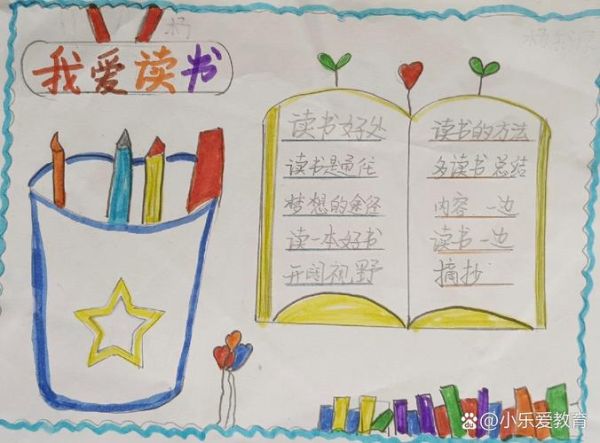 杨
我爱读书
读书好处
读书是通往
梦想的途径
读一本好书
开阔视野
读书的方法
多读书总结
内容一边
读书一边
摘抄
@小乐爱教育